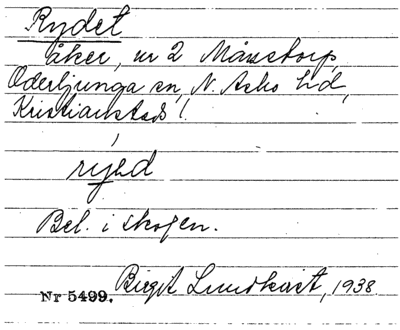 Rydet
åker, nr 2 Månstorp,
Oderljunga sn, N. Asbo hd,
Kristianstads l.
ryed
Bel. i skogen.
Nr 5499. Birgit Lundkvist, 1938.